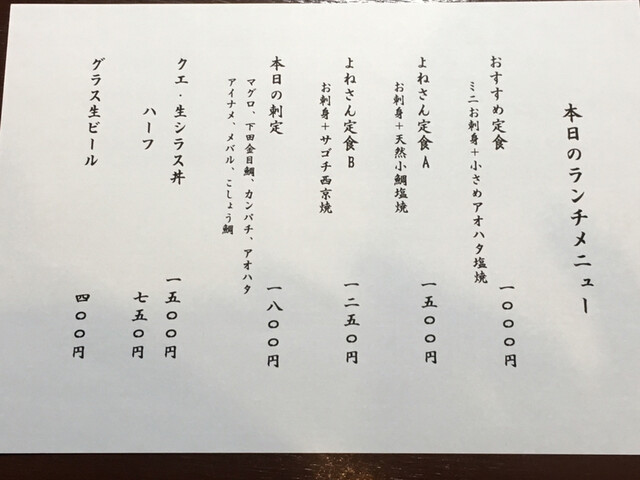 本日のランチメニュー
おすすめ定食 一〇〇〇円
ミニお刺身+小さめアオハタ塩焼
よねさん定食A 一五〇〇円
お刺身+天然小鯛塩焼
よねさん定食B 一二五〇円
お刺身+サゴチ西京焼
本日の刺定 一八〇〇円
マグロ、下田金目鯛、カンパチ、アオハタ
アイナメ、メバル、こしょう鯛
クエ・生シラス丼 一五〇〇円
ハーフ 七五〇円
グラス生ビール 四〇〇円